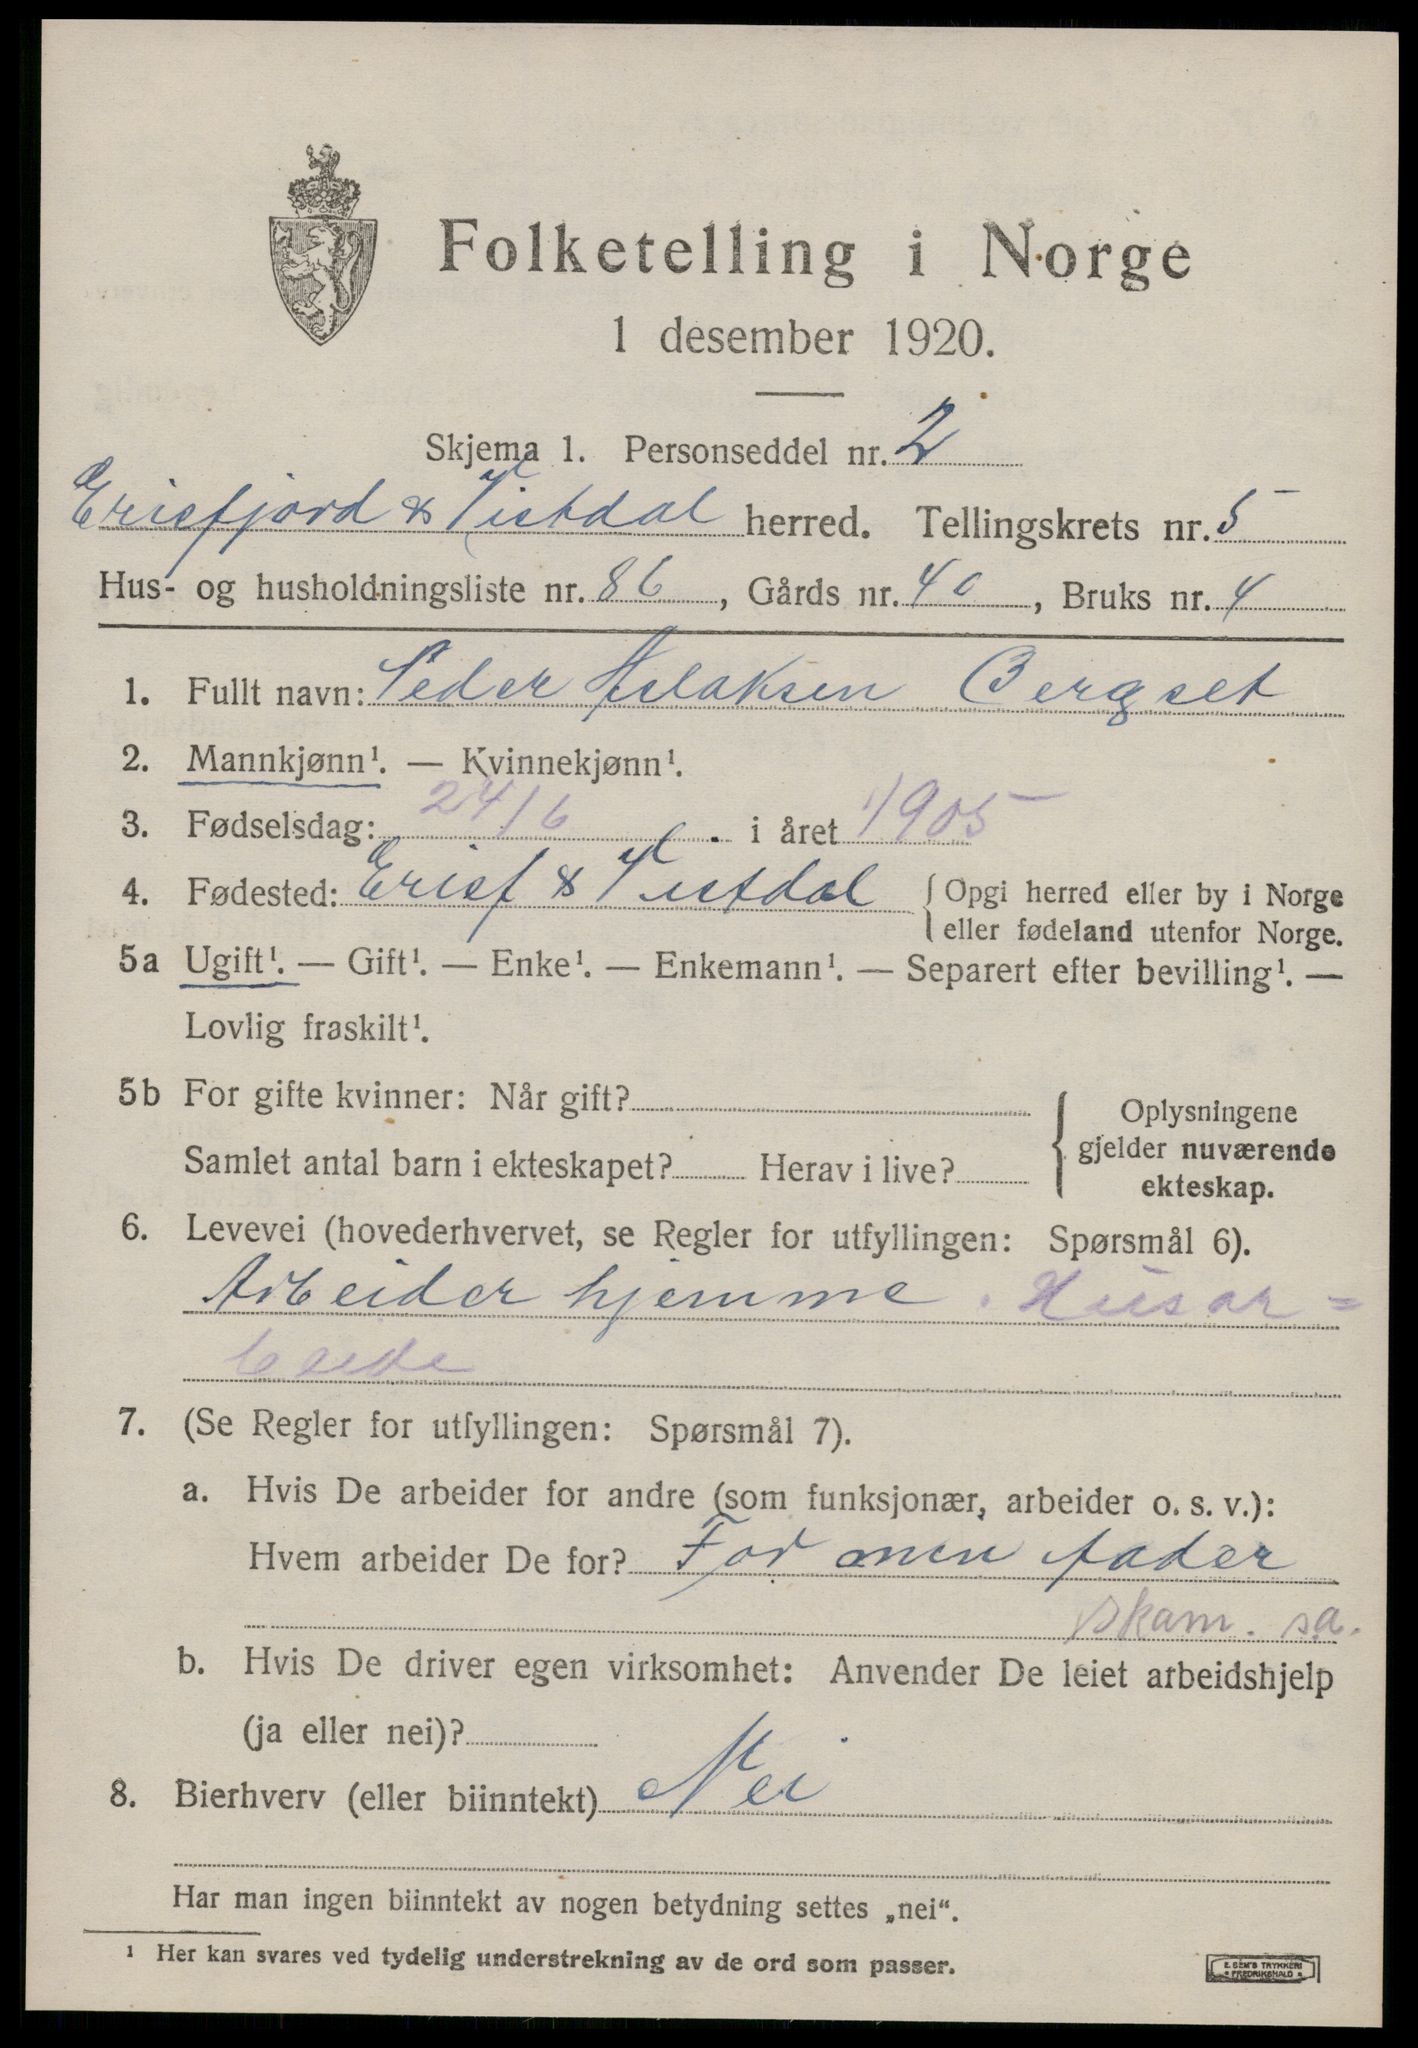 Folketelling i Norge
1 desember 1920.
Skjema 1. Personseddel nr. 2
Erisfjord & Vistdal herred. Tellingskrets nr. 5
Hus- og husholdningsliste nr. 86, Gårds nr. 40, Bruks nr. 4
1. Fullt navn: Peder Aslaksen Bergset
2. Mannkjønn¹. — Kvinnekjønn¹.
3. Fødselsdag: 24/6 i året 1905
4. Fødested: Erisf & Vistdal { Opgi herred eller by i Norge
eller fødeland utenfor Norge.
5a Ugift¹. — Gift¹. — Enke¹. — Enkemann¹. — Separert efter bevilling¹. —
Lovlig fraskilt¹.
5b For gifte kvinner: Når gift?
Samlet antal barn i ekteskapet? Herav i live?
{ Oplysningene
gjelder nuværende
ekteskap.
6. Levevei (hovederhvervet, se Regler for utfyllingen: Spørsmål 6).
Arbeider hjemme. Husar=
beide
7. (Se Regler for utfyllingen: Spørsmål 7).
a. Hvis De arbeider for andre (som funksjonær, arbeider o. s. v.):
Hvem arbeider De for? For min fader
skam. sa.
b. Hvis De driver egen virksomhet: Anvender De leiet arbeidshjelp
(ja eller nei)?
8. Bierhverv (eller biinntekt) Nei
Har man ingen biinntekt av nogen betydning settes „nei“.
¹ Her kan svares ved tydelig understrekning av de ord som passer.
E. SEM'S TRYKKERI
FREDRIKSHALD